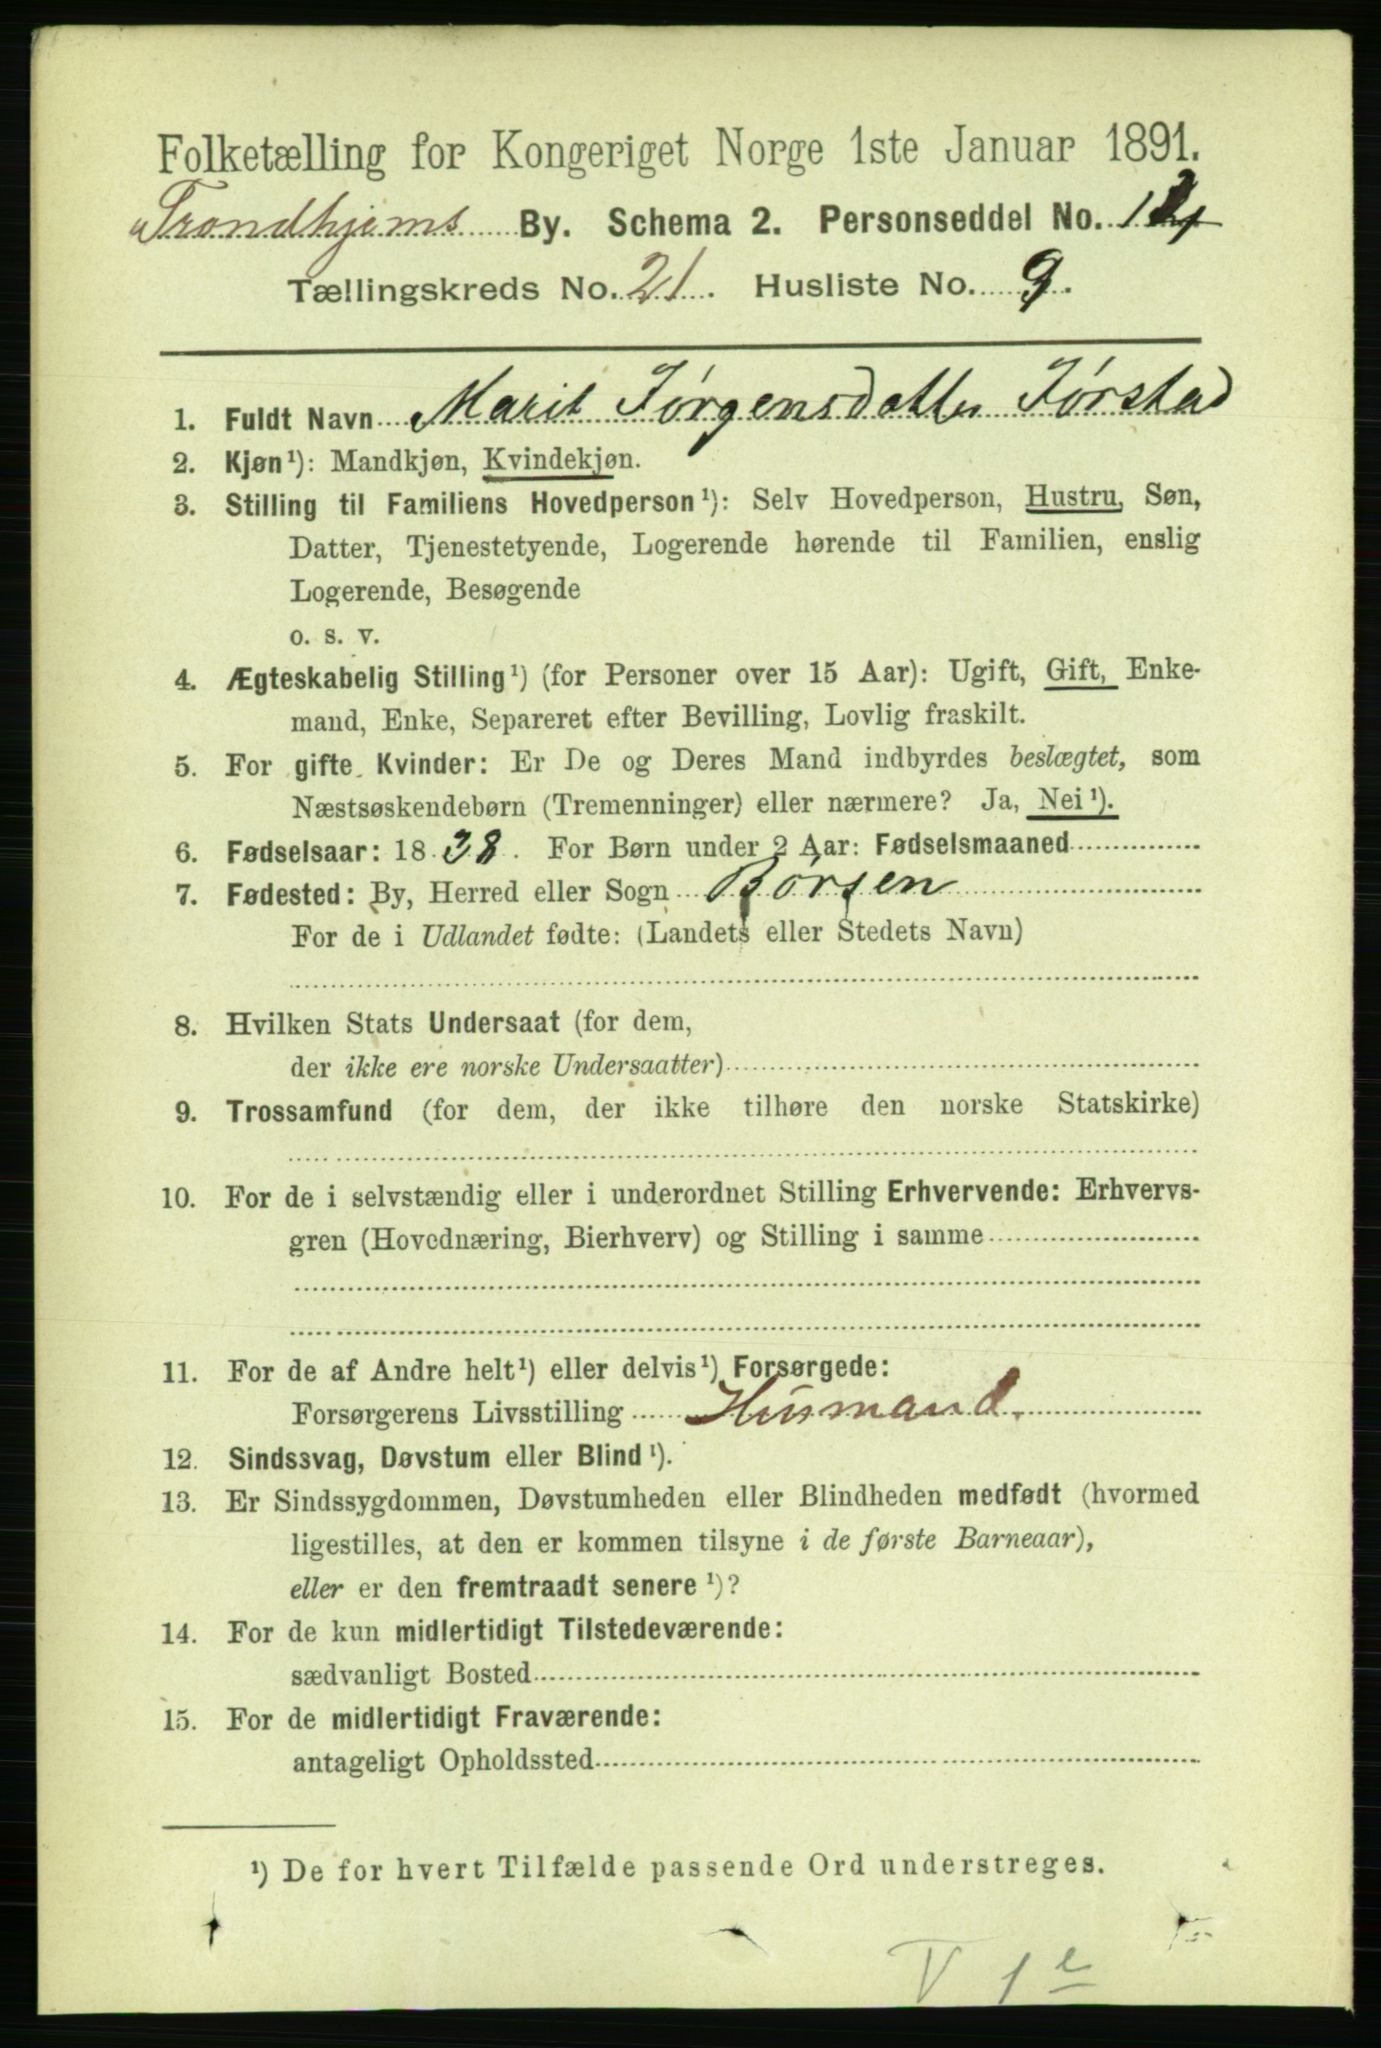 Folketælling for Kongeriget Norge 1ste Januar 1891.
Trondhjems By. Schema 2. Personseddel No.
Tællingskreds No. 21. Husliste No. 9.
1. Fuldt Navn Marit Jørgensdatter Jørstad
2. Kjøn¹): Mandkjøn, Kvindekjøn.
3. Stilling til Familiens Hovedperson¹): Selv Hovedperson, Hustru, Søn,
Datter, Tjenestetyende, Logerende hørende til Familien, enslig
Logerende, Besøgende
o. s. v.
4. Ægteskabelig Stilling¹) (for Personer over 15 Aar): Ugift, Gift, Enke-
mand, Enke, Separeret efter Bevilling, Lovlig fraskilt.
5. For gifte Kvinder: Er De og Deres Mand indbyrdes beslægtet, som
Næstsøskendebørn (Tremenninger) eller nærmere? Ja, Nei¹).
6. Fødselsaar: 1838. For Børn under 2 Aar: Fødselsmaaned
7. Fødested: By, Herred eller Sogn Børsen
For de i Udlandet fødte: (Landets eller Stedets Navn)
8. Hvilken Stats Undersaat (for dem,
der ikke ere norske Undersaatter)
9. Trossamfund (for dem, der ikke tilhøre den norske Statskirke)
10. For de i selvstændig eller i underordnet Stilling Erhvervende: Erhvervs-
gren (Hovednæring, Bierhverv) og Stilling i samme
11. For de af Andre helt¹) eller delvis¹) Forsørgede:
Forsørgerens Livsstilling Husmand.
12. Sindssvag, Døvstum eller Blind¹).
13. Er Sindssygdommen, Døvstumheden eller Blindheden medfødt (hvormed
ligestilles, at den er kommen tilsyne i de første Barneaar),
eller er den fremtraadt senere¹)?
14. For de kun midlertidigt Tilstedeværende:
sædvanligt Bosted
15. For de midlertidigt Fraværende:
antageligt Opholdssted
¹) De for hvert Tilfælde passende Ord understreges.
V 1e